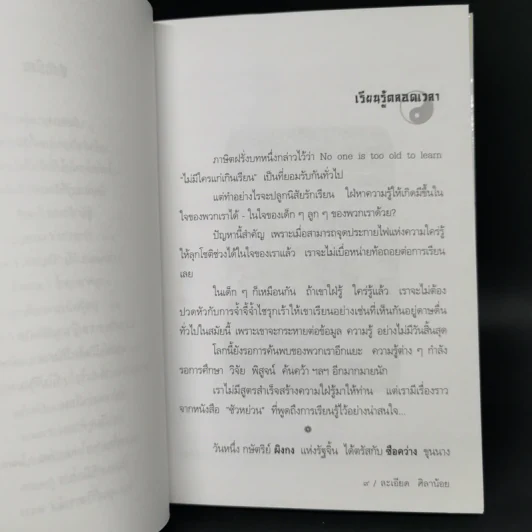 เรียนรู้ตลอดเวลา
ภาษิตฝรั่งบทหนึ่งกล่าวไว้ว่า No one is too old to learn
"ไม่มีใครแก่เกินเรียน" เป็นที่ยอมรับกันทั่วไป
แต่ทำอย่างไรจะปลูกนิสัยรักเรียน ใฝ่หาความรู้ให้เกิดมีขึ้นใน
ใจของพวกเราได้ - ในใจของเด็ก ๆ ลูก ๆ ของพวกเราด้วย?
ปัญหานี้สำคัญ เพราะเมื่อสามารถจุดประกายไฟแห่งความใคร่รู้
ให้ลุกโชติช่วงได้ในใจของเราแล้ว เราจะไม่เบื่อหน่ายท้อถอยต่อการเรียน
เลย
ในเด็ก ๆ ก็เหมือนกัน ถ้าเขาใฝ่รู้ ใคร่รู้แล้ว เราจะไม่ต้อง
ปวดหัวกับการจ้ำจี้จ้ำไชรุกเร้าให้เขาเรียนอย่างเช่นที่เห็นกันอยู่ดาษดื่น
ทั่วไปในสมัยนี้ เพราะเขาจะกระหายต่อข้อมูล ความรู้ อย่างไม่มีวันสิ้นสุด
โลกนี้ยังรอการค้นพบของพวกเราอีกแยะ ความรู้ต่าง ๆ กำลัง
รอการศึกษา วิจัย พิสูจน์ ค้นคว้า ฯลฯ อีกมากมายนัก
เราไม่มีสูตรสำเร็จสร้างความใฝ่รู้มาให้ท่าน แต่เรามีเรื่องราว
จากหนังสือ "ซัวหย่วน" ที่พูดถึงการเรียนรู้ไว้อย่างน่าสนใจ...
วันหนึ่ง กษัตริย์ ผิงกง แห่งรัฐจิ้น ได้ตรัสกับ ซือคว่าง ขุนนาง
๙ / ละเอียด ศิลาน้อย